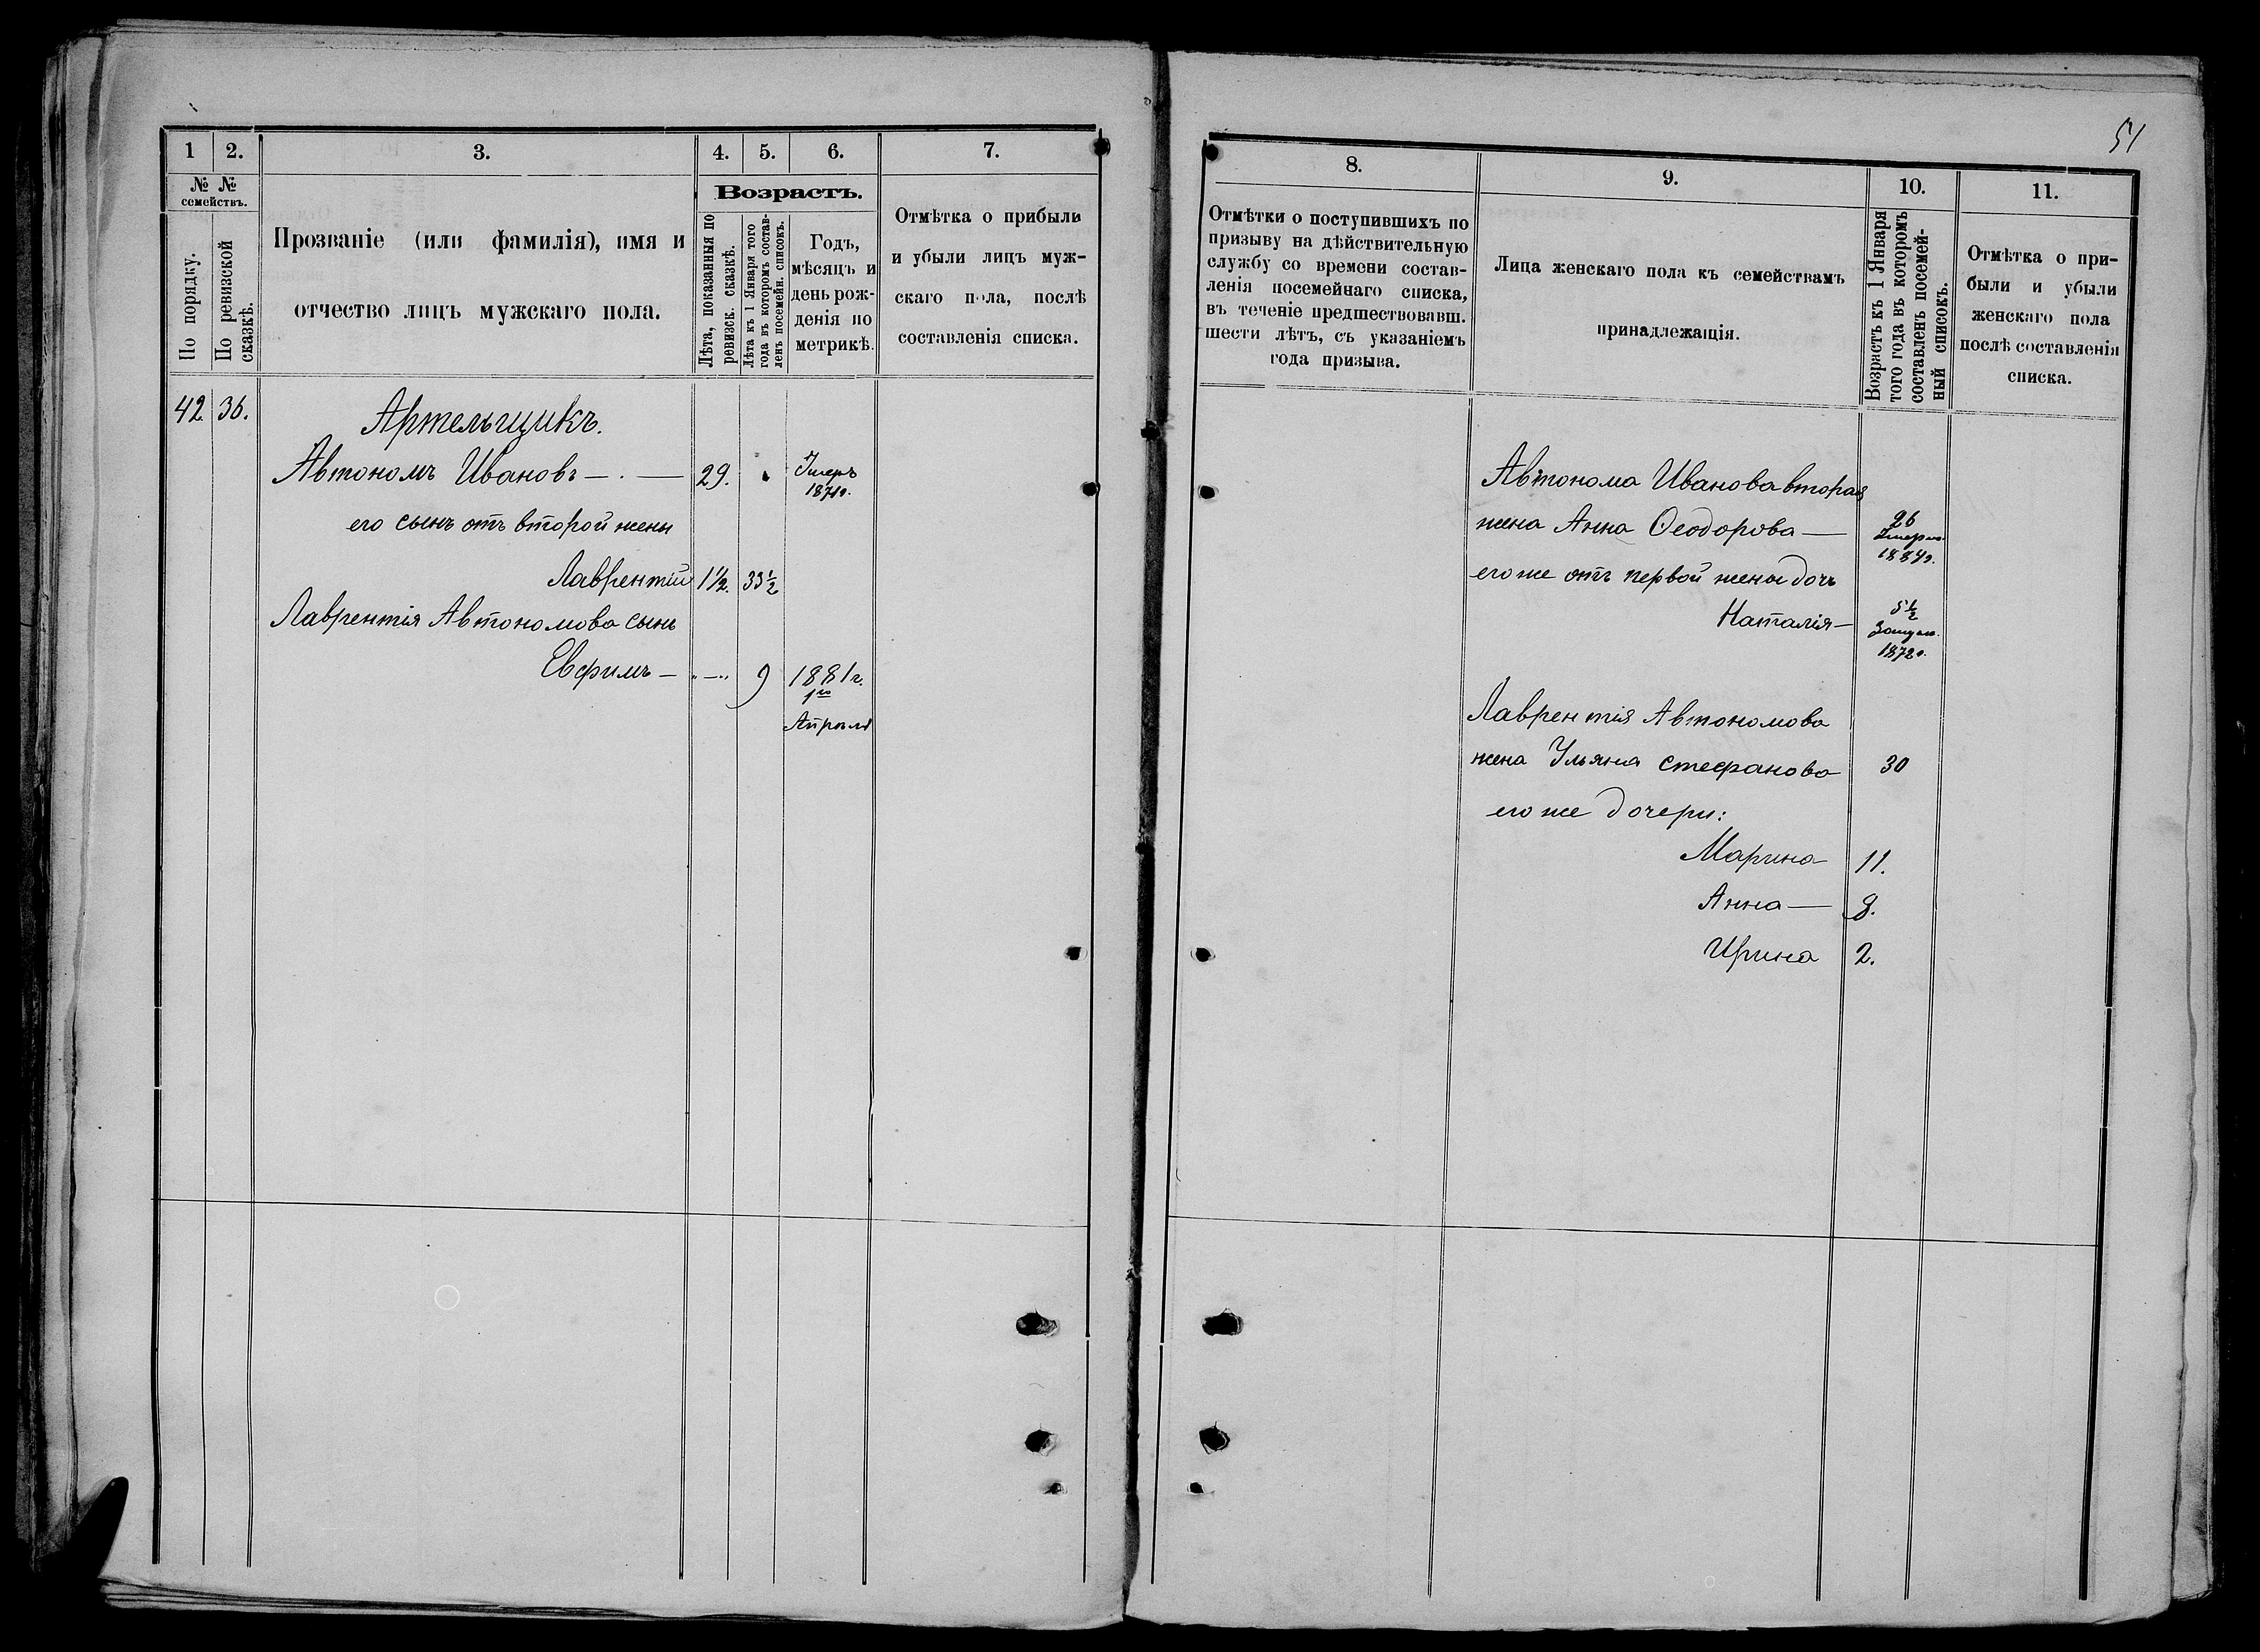 1 2. 3. 4. 5. 6. 7.
№ № семействъ.
По порядку.
По ревизской сказкѣ.
Прозваніе (или фамилія), имя и
отчество лицъ мужскаго пола.
Возрастъ.
Лѣта, показанныя по
ревизск. сказкѣ.
Лѣта къ 1 Января того
года въ которомъ состав-
ленъ посемейн. списокъ.
Годъ,
мѣсяцъ и
день рож-
денія по
метрикѣ.
Отмѣтка о прибыли
и убыли лицъ муж-
скаго пола, послѣ
составленія списка.
42. 36. Артельщикъ.
Автономъ Ивановъ — . — 29. Умеръ
1871г.
его сынъ отъ второй жены
Лаврентій 1 1/2. 33 1/2
Лаврентія Автономова сынъ
Евфимъ — „—„ 9 1881г.
1го
Апрѣля
51
8. 9. 10. 11.
Отмѣтки о поступившихъ по
призыву на дѣйствительную
службу со времени состав-
ленія посемейнаго списка,
въ теченіе предшествовавш.
шести лѣтъ, съ указаніемъ
года призыва.
Лица женскаго пола къ семействамъ
принадлежащія.
Возрастъ къ 1 Января
того года въ которомъ
составленъ посемей-
ный списокъ.
Отмѣтка о при-
были и убыли
женскаго пола
послѣ составленія
списка.
Автонома Иванова вторая
жена Анна Ѳеодорова — 26
Умерла
1884г.
его же отъ первой жены дочь
Наталія — 5 1/2
Замуж.
1872г.
Лаврентія Автономова
жена Ульяна Стефанова 30
его же дочери:
Марина 11.
Анна — 8.
Ирина 2.